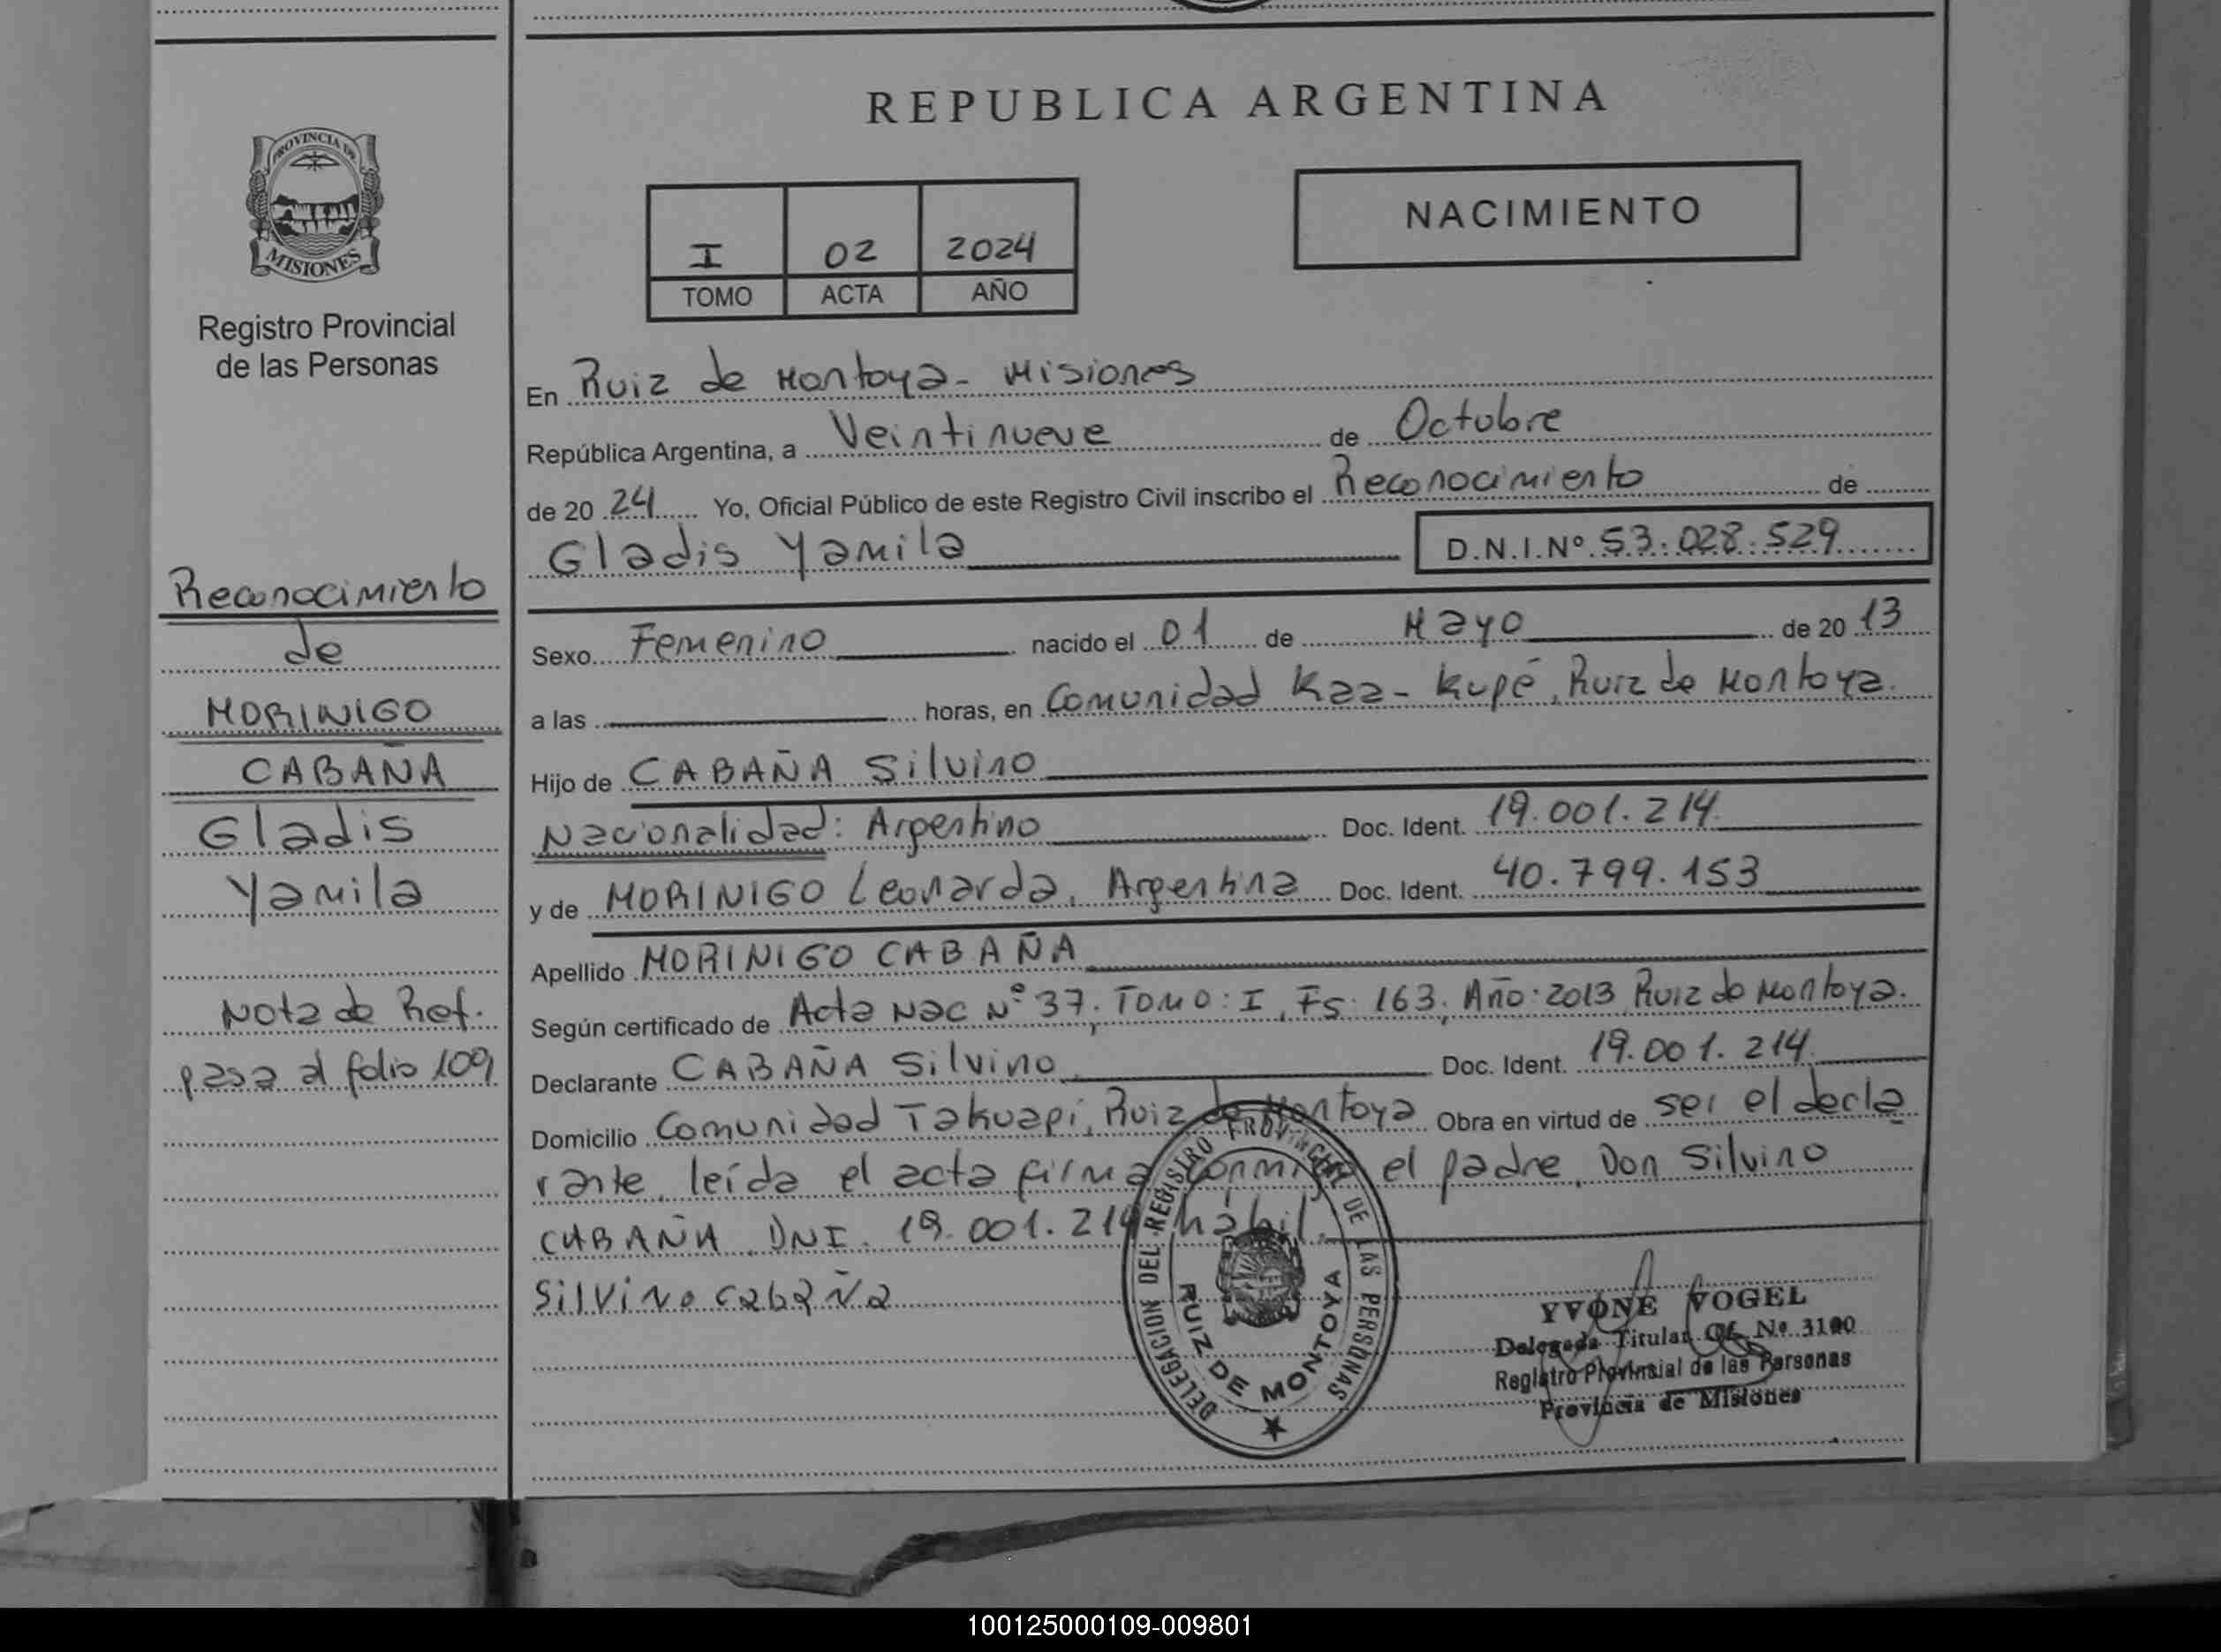 PROVINCIA DE
MISIONES
Registro Provincial
de las Personas
Reconocimiento
de
MORINIGO
CABAÑA
Gladis
Yamila
Nota de Ref.
pasa al folio 109
REPUBLICA ARGENTINA
I 02 2024
TOMO ACTA AÑO
NACIMIENTO
En Ruiz de Montoya - Misiones
República Argentina, a Veintinueve de Octubre
de 20 24 Yo, Oficial Público de este Registro Civil inscribo el Reconocimiento de
Gladis Yamila D.N.I.Nº 53.028.529
Sexo Femenino nacido el 01 de Mayo de 20 13
a las horas, en Comunidad Kaa-Kupé, Ruiz de Montoya.
Hijo de CABAÑA Silvino
Nacionalidad: Argentino Doc. Ident. 19.001.214
y de MORINIGO Leonarda, Argentina Doc. Ident. 40.799.153
Apellido MORINIGO CABAÑA
Según certificado de Acta Nac Nº 37, Tomo: I, Fs: 163, Año: 2013 Ruiz de Montoya.
Declarante CABAÑA Silvino Doc. Ident. 19.001.214
Domicilio Comunidad Takuapí, Ruiz de Montoya Obra en virtud de ser el decla
rante, leída el acta firma conmigo el padre, Don Silvino
CABAÑA, DNI. 19.001.214 hábil.
Silvino cabaña
DELEGACION DEL REGISTRO PROVINCIAL DE LAS PERSONAS
RUIZ DE MONTOYA
YVONE VOGEL
Delegada Titular Of. Nº 3100
Registro Provincial de las Personas
Provincia de Misiones
100125000109-009801